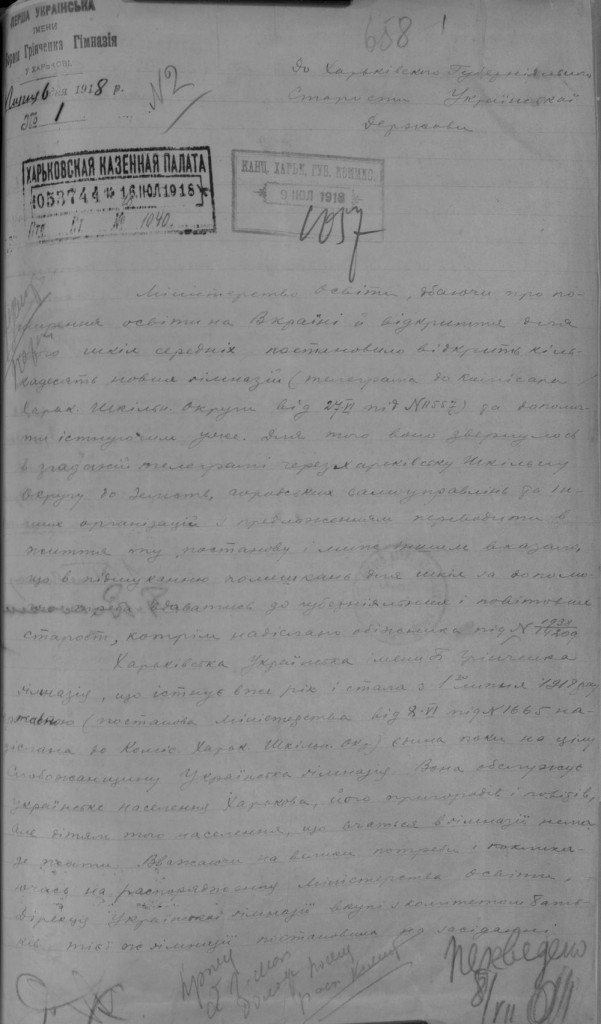 ПЕРША УКРАЇНСЬКА
ІМЕНИ
Грінченка Гімназія
У ХАРЬКОВІ.
Липця 6 дня 1918 р.
№ 1
№2
658
До Харьківского Губерніяльного
Старости Української
Держави
ХАРЬКОВСКАЯ КАЗЕННАЯ ПАЛАТА
053744 16 ІЮЛ 1918
Отд. Ст. № 1040.
КАНЦ. ХАРЬК. ГУБ. КОММИС.
9 ІЮЛ 1918
1057
Міністерство Освіти, дбаючи про по-
ширення освіти на Вкраїні й відкриття для
того шкіл середніх постановило відкрить кіль-
кадесять нових гімназій (телеграма до комісара
Харьк. Шкільн. Округи від 27/VI під №11557) та допомо-
ти істнуючим уже. Для того воно звернулось
в згаданій телеграмі через Харьківську Шкільну
Округу до Земств, городських самоуправлінь та ін-
ших організацій з предложенням переводити в
життя цю постанову і
що в підшуканню помешкань для шкіл за допомо-
гою вдаватись до губерніяльних і повітових
старост, котрім надіслано обіжника під №
Харьківська Українська імени Б. Грінченка
гімназія, що істнує вже рік і стала з 1го липня 1918 року
державною (постанова Міністерства від 2-VI під №1665 на-
діслана до Коміс. Харьк. Шкільн. Окр.) єдина поки на цілу
Слобожанщину Українська гімназія. Вона обслужує
українське населення Харькова, його пригородів і повітів,
але дітям того населення, що вчаться в гімназії нема
де жити. Вважаючи на великі потреби і покликa-
ючась на распорядження Міністерства Освіти,
Дірекція Української гімназії вкупі з комітетом бать-
ків тієї ж гімназії постановила на засіданні
Переведено
8/VII